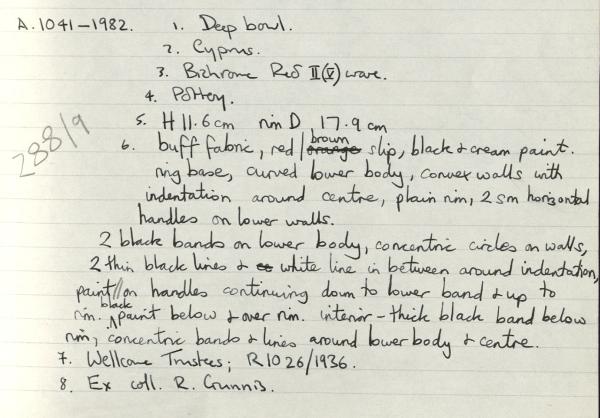 A.1041-1982. 1. Deep bowl.
2. Cyprus.
3. Bichrome Red II(V) ware.
4. Pottery.
5. H 11.6cm rim D 17.9cm
288/9
6. buff fabric, red/orange brown slip, black & cream paint.
ring base, curved lower body, convex walls with
indentation around centre, plain rim, 2 sm horizontal
handles on lower walls.
2 black bands on lower body, concentric circles on walls,
2 thin black lines & white line in between around indentation,
paint // on handles continuing down to lower band & up to
rim. black paint below & over rim. interior - thick black band below
rim, concentric bands & lines around lower body & centre.
7. Wellcome Trustees; R1026/1936.
8. Ex coll. R. Gunnis.